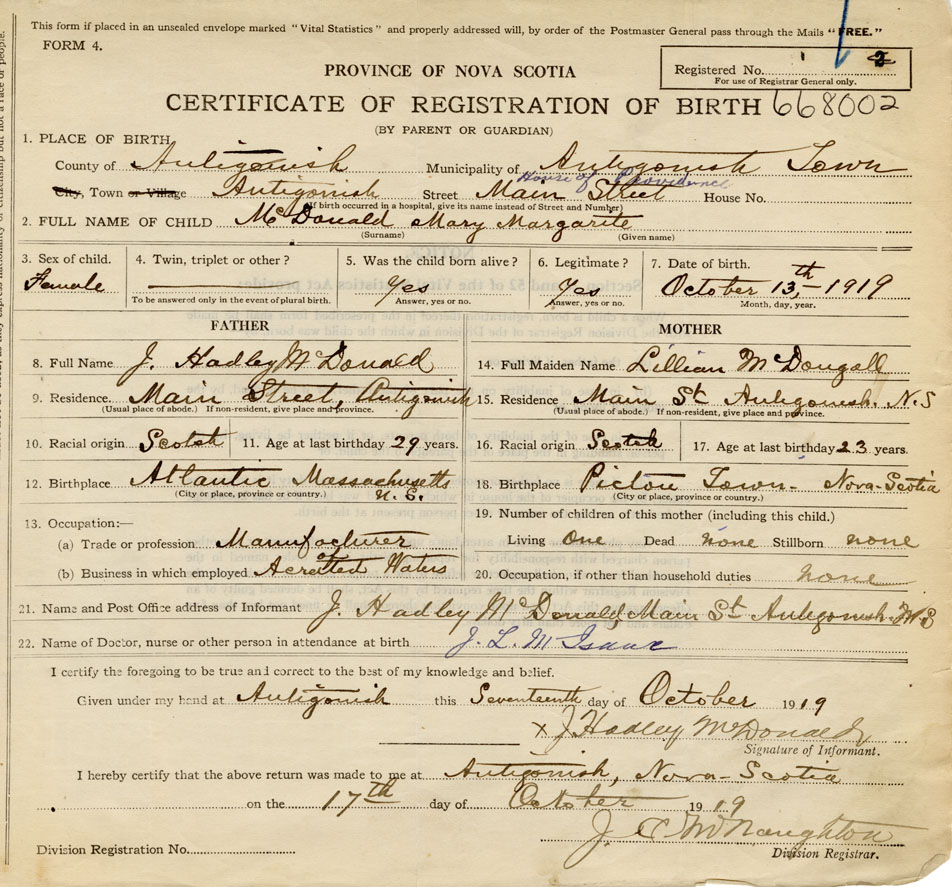 This form if placed in an unsealed envelope marked "Vital Statistics" and properly addressed will, by order of the Postmaster General pass through the Mails "FREE."
FORM 4.
Registered No. 2
For use of Registrar General only.
PROVINCE OF NOVA SCOTIA
CERTIFICATE OF REGISTRATION OF BIRTH 668002
(BY PARENT OR GUARDIAN)
1. PLACE OF BIRTH
County of Antigonish Municipality of Antigonish Town
House of Providence
City, Town or Village Antigonish Street Main Street House No.
(If birth occurred in a hospital, give its name instead of Street and Number)
2. FULL NAME OF CHILD McDonald Mary Margarite
(Surname) (Given name)
3. Sex of child. 4. Twin, triplet or other? 5. Was the child born alive? 6. Legitimate? 7. Date of birth.
Female Yes Yes October 13th - 1919
To be answered only in the event of plural birth. Answer, yes or no. Answer, yes or no. Month, day, year.
FATHER MOTHER
8. Full Name J. Hadley McDonald 14. Full Maiden Name Lillian McDougall
9. Residence. Main Street, Antigonish 15. Residence Main St Antigonish. N.S
(Usual place of abode.) If non-resident, give place and province. (Usual place of abode.) If non-resident, give place and province.
10. Racial origin Scotch 11. Age at last birthday 29 years. 16. Racial origin Scotch 17. Age at last birthday 23 years.
12. Birthplace Atlantic Massachusetts 18. Birthplace Pictou Town - Nova-Scotia
(City or place, province or country.) (City or place, province or country.)
13. Occupation:— 19. Number of children of this mother (including this child.)
(a) Trade or profession Manufacturer Living One Dead none Stillborn none
of
(b) Business in which employed Aerated Waters 20. Occupation, if other than household duties none
21. Name and Post Office address of Informant J. Hadley McDonald, Main St Antigonish N.S
22. Name of Doctor, nurse or other person in attendance at birth J. L. McIsaac
I certify the foregoing to be true and correct to the best of my knowledge and belief.
Given under my hand at Antigonish this Seventeenth day of October 1919
x J Hadley McDonald
Signature of Informant.
I hereby certify that the above return was made to me at Antigonish, Nova-Scotia
on the 17th day of October 1919
McNaughton
Division Registration No. Division Registrar.